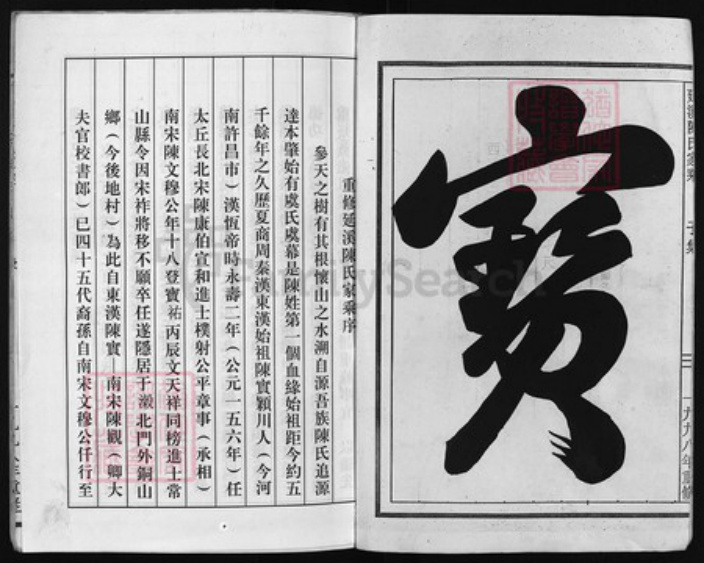 寶
延溪陳氏家乘
子集
三
一九九八年重修
重修延溪陳氏家乘序
參天之樹有其根懷山之水溯自源吾族陳氏追源
達本肇始有虞氏虞幕是陳姓第一個血緣始祖距今約五
千餘年之久歷夏商周秦漢東漢始祖陳實穎川人（今河
南許昌市）漢恆帝時永壽二年（公元一五六年）任
太丘長北宋陳康伯宣和進士樸射公平章事（承相）
南宋陳文穆公年十八登寶祐丙辰文天祥同榜進士常
山縣令因宋祚將移不願卒任遂隱居于澉北門外銅山
鄉（今後地村）為此自東漢陳實—南宋陳觀（卿大
夫官校書郎）已四十五代裔孫自南宋文穆公仟行至